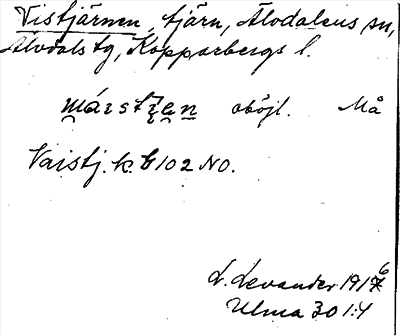 Vistjärnen, tjärn, Älvdalens sn,
Älvdals tg, Kopparbergs l.
obojl. Må
Vaistj. k. G 102 NO.
L. Levander 1916
Ulma 301:4